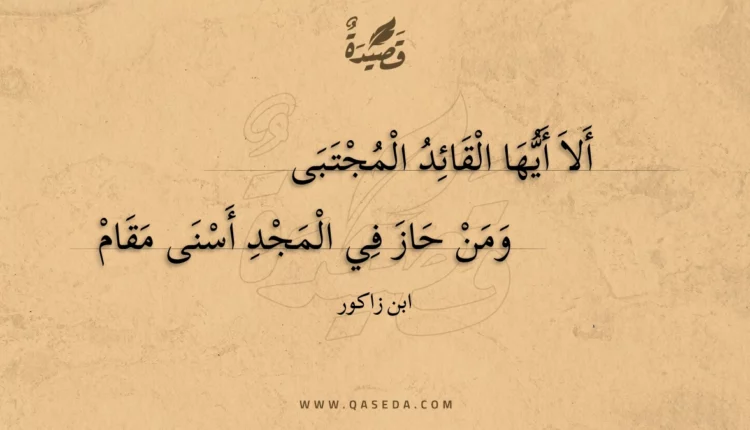 قَصِيْدَةٌ
أَلاَ أَيُّهَا الْقَائِدُ الْمُجْتَبَى
وَمَنْ حَازَ فِي الْمَجْدِ أَسْنَى مَقَامْ
ابن زاكور
WWW.QASEDA.COM